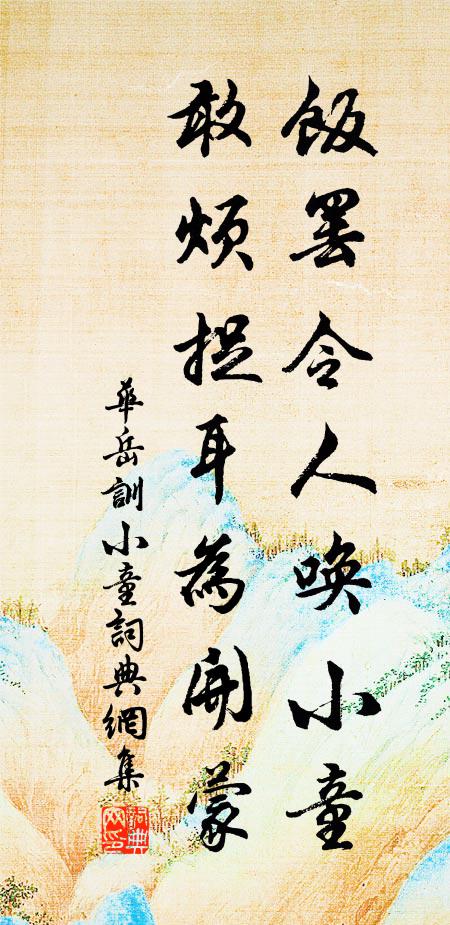 飯罷令人喚小童
敢煩捉耳為開蒙
華岳訓小童詞典網集
詞典網印